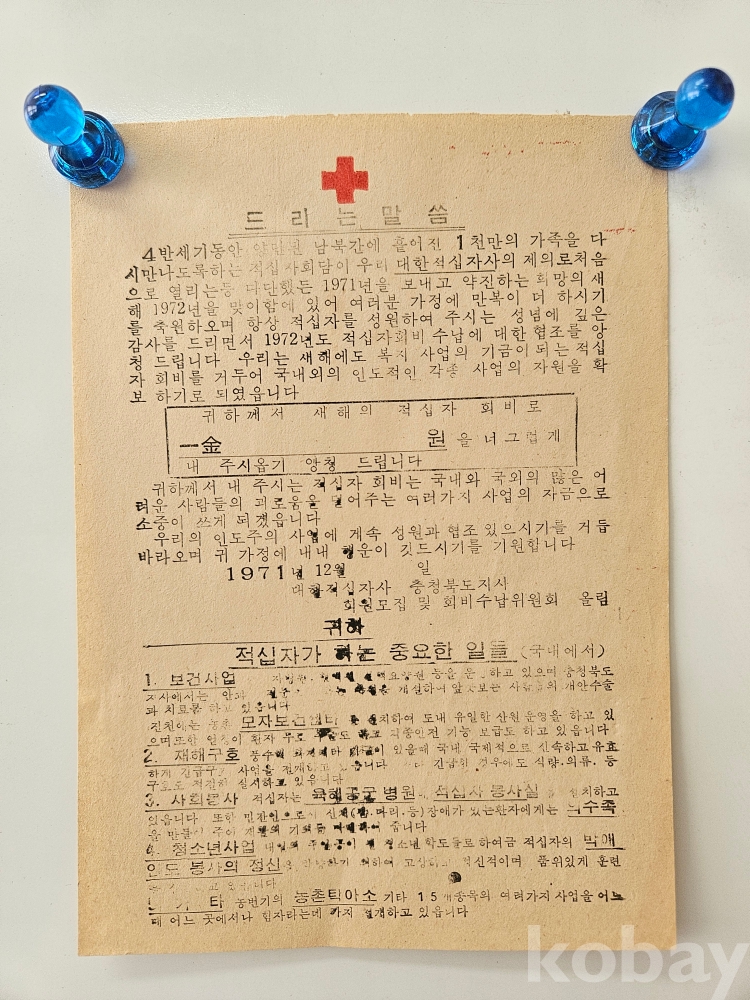 드리는말씀
4반세기동안 남북간에 흩어진 1천만의 가족을 다
시만나도록하는 적십자회담이 우리 대한적십자사의 제의로처음
으로 열리는등 다단했든 1971년을 보내고 약진하는 희망의 새
해 1972년을 맞이함에 있어 여러분 가정에 만복이 더 하시기
를 축원하오며 항상 적십자를 성원하여 주시는 성념에 깊은
감사를 드리면서 1972년도 적십자회비 수납에 대한 협조를 앙
청 드립니다 우리는 새해에도 복지 사업의 기금이 되는 적십
자 회비를 거두어 국내외의 인도적인 각종 사업의 자원을 확
보 하기로 되였읍니다
귀하께서 새해의 적십자 회비로
一金 원을 너그럽게
내 주시옵기 앙청 드립니다
귀하께서 내 주시는 적십자 회비는 국내와 국외의 많은 어
려운 사람들의 괴로움을 덜어주는 여러가지 사업의 자금으로
소중이 쓰게 되겠읍니다
우리의 인도주의 사업에 계속 성원과 협조 있으시기를 거듭
바라오며 귀 가정에 내내 행운이 깃드시기를 기원합니다
1971년 12월 일
대한적십자사 충청북도지사
회원모집 및 회비수납위원회 올림
귀하
적십자가 하는 중요한 일들 (국내에서)
1. 보건사업 등을 하고 있으며 충청북도
지사에서는 개설하여 앞못보는 사람들의 개안수술
과 치료를 하고 있읍니다
진천에는 농촌 모자보건센타를 설치하여 도내 유일한 산원 운영을 하고 있
으며또한 환자 무료 각종안전 기능 보급도 하고 있읍니다
2. 재해구호 풍수해 있을때 국내 국제적으로 신속하고 유효
하게 긴급구호 사업을 전개하고 있읍니다 긴급한 경우에도 식량.의류. 등
구호도 실시하고 있읍니다
3. 사회봉사 적십자는 육해공군 병원에 적십자 봉사실을 설치하고
있읍니다 또한 민간인으로서 신체(팔.다리.등)장애가 있는환자에게는 의수족
을 만들어 주어 줍니다
4. 청소년사업 내일의 청소년 학도들로하여금 적십자의 박애
인도 봉사의 정신을 위하여 고상하고 혁신적이며 품위있게 훈련
있읍니다
기 타 농번기의 농촌탁아소 기타 15개종목의 여러가지 사업을 어느
때 어느 곳에서나 힘자라는데 까지 전개하고 있읍니다
kobay